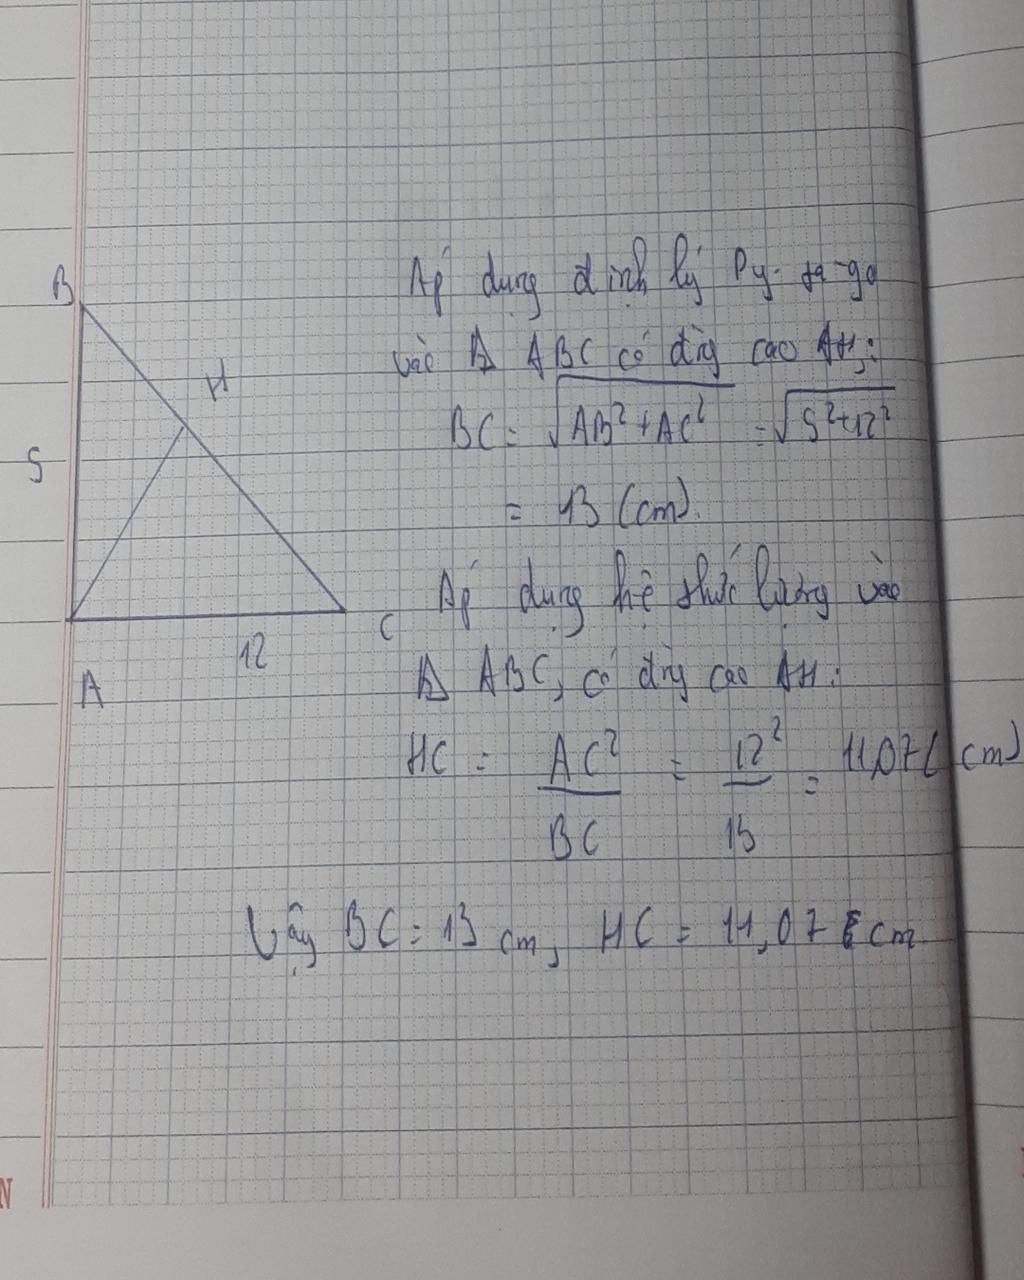 B
H
5
A
12
C
Áp dụng định lý Py-ta-go
vào Δ ABC có đ̀ng cao AH:
BC = √AB² + AC² = √5²+12²
= 13 (cm).
Áp dụng hệ thức lượng vào
Δ ABC, có đ̀ng cao AH:
HC = AC²/BC = 12²/13 = 11,07 (cm)
Vậy BC = 13 cm, HC = 11,07 cm
N